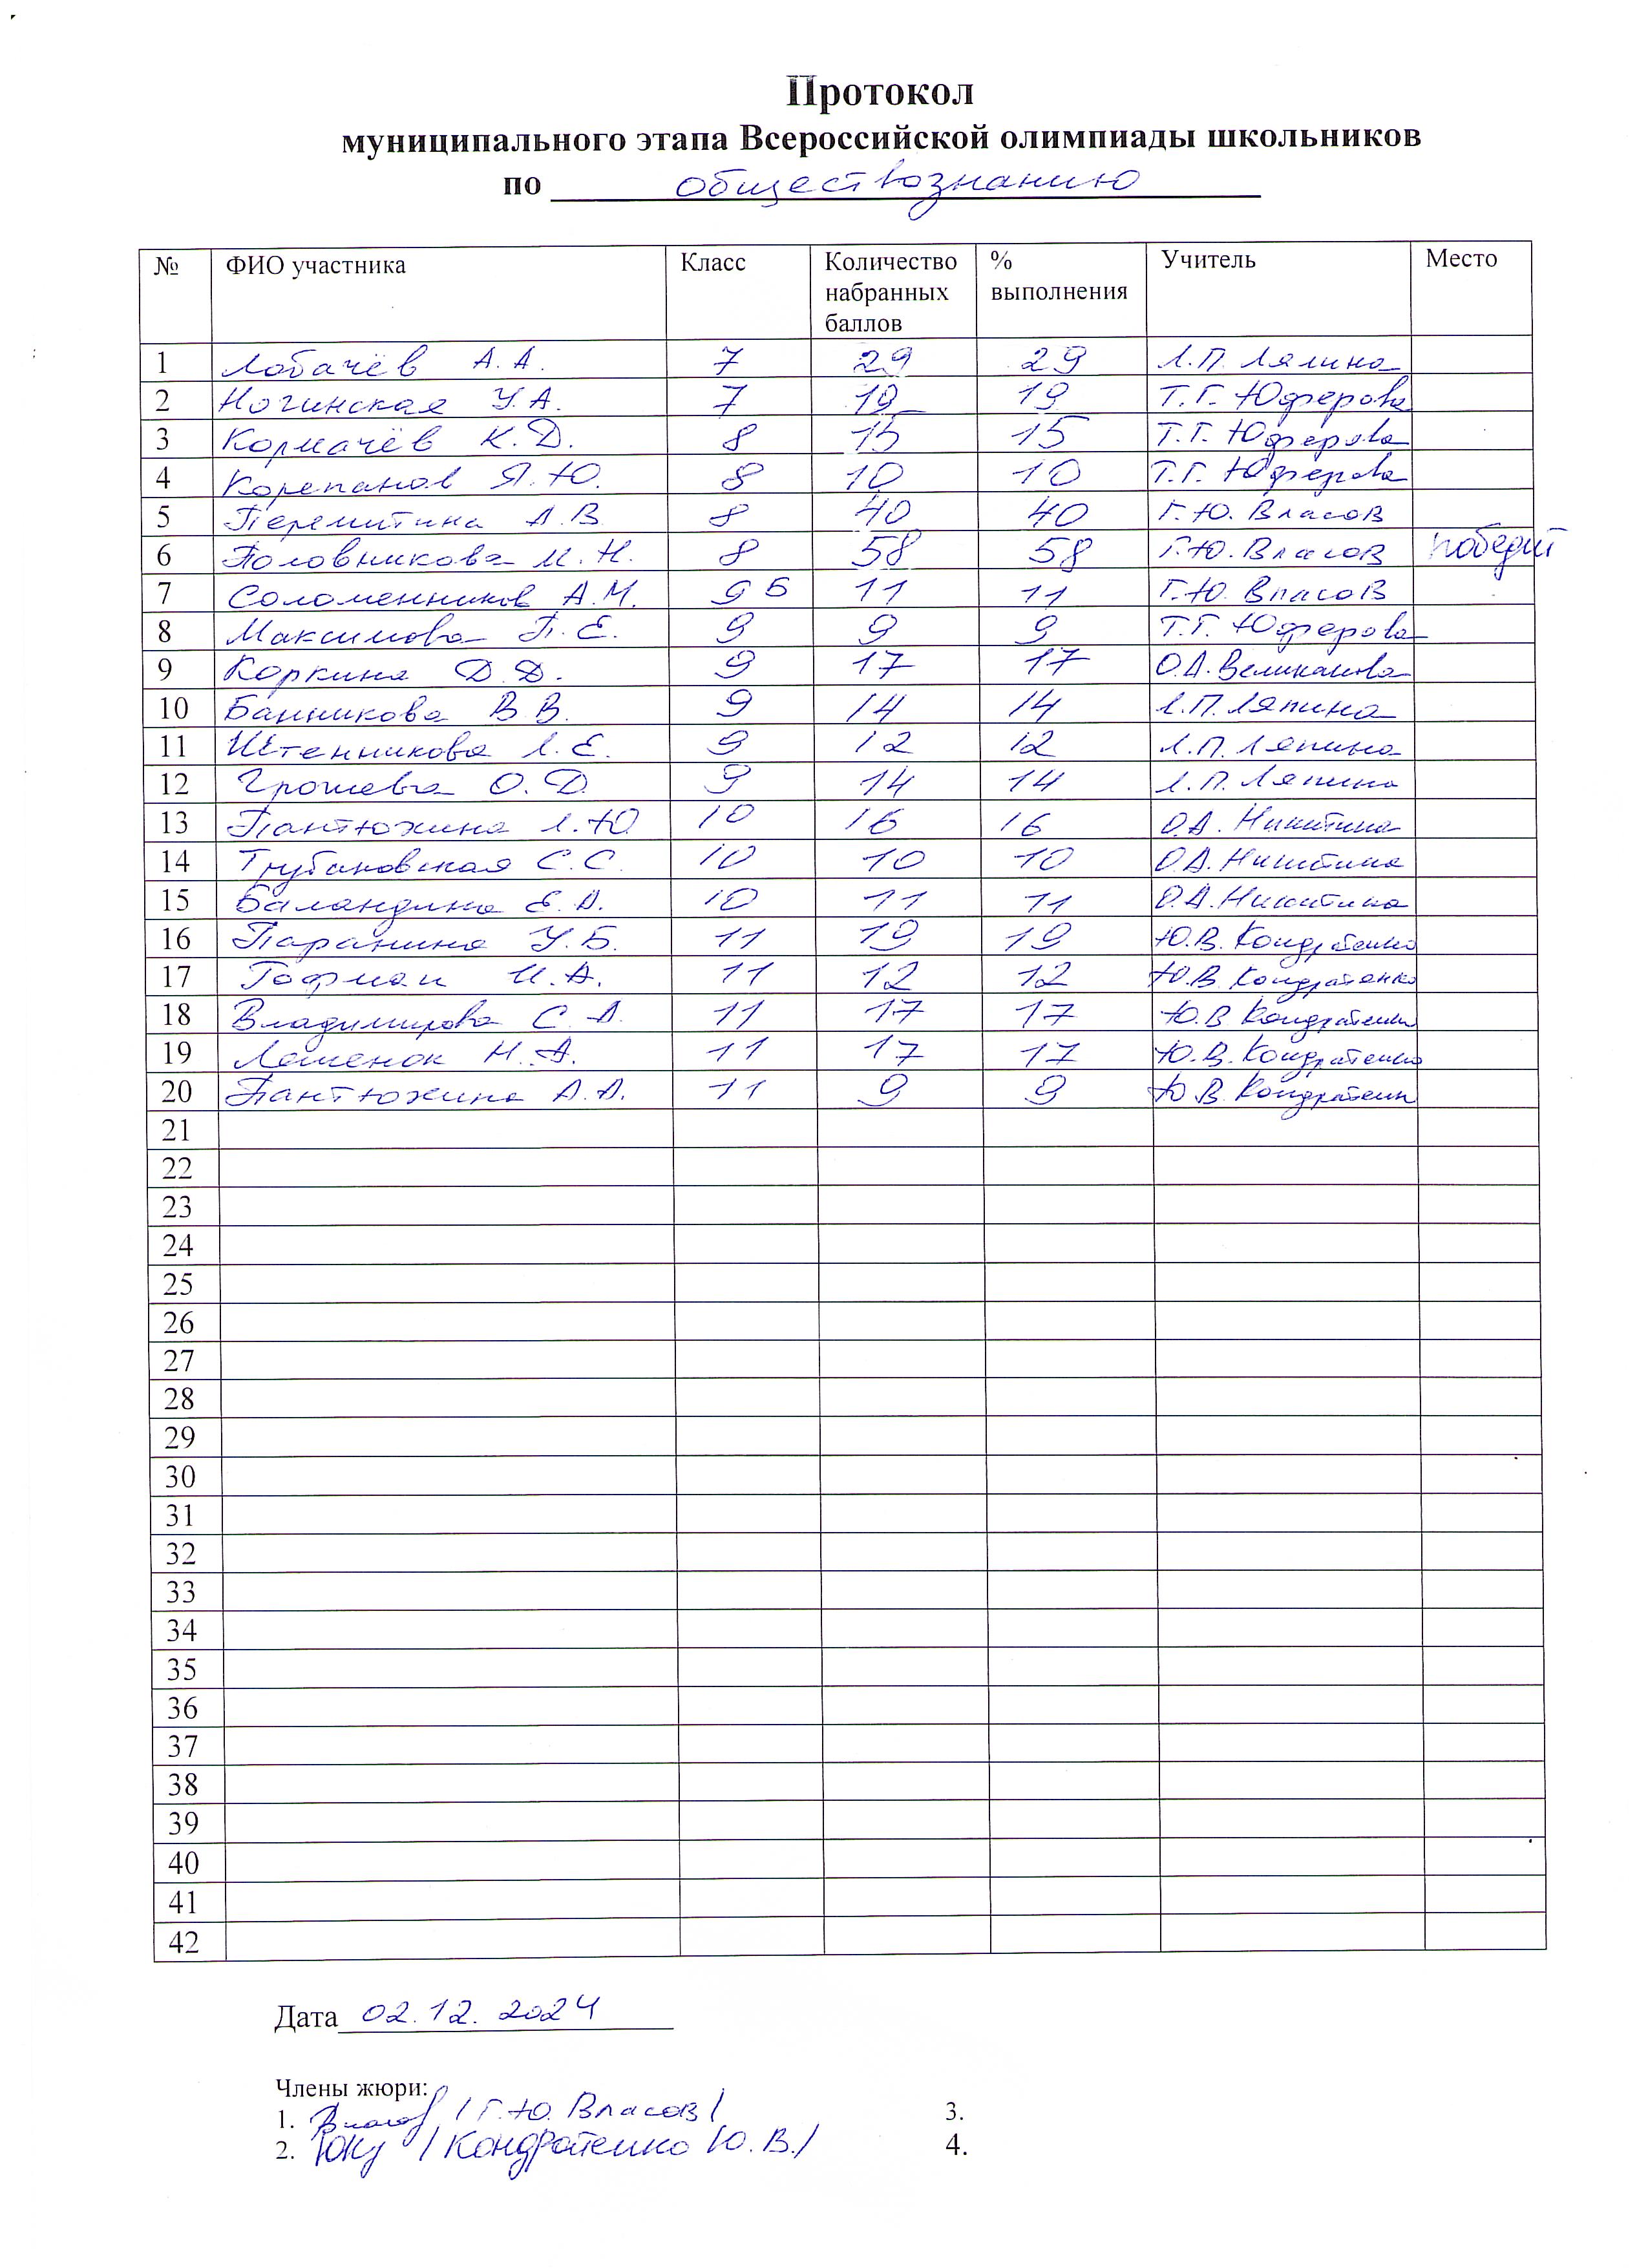 Протокол
муниципального этапа Всероссийской олимпиады школьников
по обществознанию
№ ФИО участника Класс Количество набранных баллов % выполнения Учитель Место
1 Лобачёв А.А. 7 29 29 Л.П. Ляпина
2 Ногинская У.А. 7 19 19 Т.Г. Юферова
3 Кормачёв К.Д. 8 15 15 Т.Г. Юферова
4 Корепанов Я.Ю. 8 10 10 Т.Г. Юферова
5 Перемитина А.В. 8 40 40 Г.Ю. Власов
6 Половникова М.Н. 8 58 58 Г.Ю. Власов победит
7 Соломенников А.М. 9 Б 11 11 Г.Ю. Власов
8 Максимова П.Е. 9 9 9 Т.Г. Юферова
9 Коркина Д.Д. 9 17 17 О.А. Великанова
10 Банникова В.В. 9 14 14 Л.П. Ляпина
11 Штенникова Л.Е. 9 12 12 Л.П. Ляпина
12 Грошева О.Д. 9 14 14 Л.П. Ляпина
13 Пантюхина Л.Ю. 10 16 16 О.А. Никитина
14 Трубановская С.С. 10 10 10 О.А. Никитина
15 Баландина Е.А. 10 11 11 О.А. Никитина
16 Паранина У.Б. 11 19 19 Ю.В. Кондратенко
17 Гофман И.А. 11 12 12 Ю.В. Кондратенко
18 Владимирова С.А. 11 17 17 Ю.В. Кондратенко
19 Лешенок Н.А. 11 17 17 Ю.В. Кондратенко
20 Пантюхина А.А. 11 9 9 Ю.В. Кондратенк
21
22
23
24
25
26
27
28
29
30
31
32
33
34
35
36
37
38
39
40
41
42
Дата 02.12.2024
Члены жюри:
1. /Г.Ю. Власов/ 3.
2. /Кондратенко Ю.В./ 4.